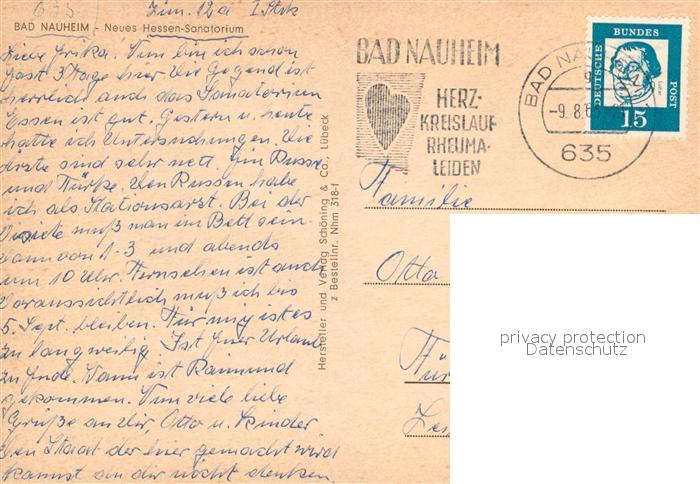 635 Zim. 12a I Stck
BAD NAUHEIM - Neues Hessen-Sanatorium
Liebe Erika. Nun bin ich schon
fast 3 Tage hier. Die Gegend ist
herrlich auch das Sanatorium
Essen ist gut. Gestern u. heute
hatte ich Untersuchungen. Die
Ärzte sind sehr nett. Ein Russe
und Türke. Den Russen habe
ich als Stationsarzt. Bei der
Visite muß man im Bett sein.
Dann von 1-3 und abends
um 10 Uhr. Fernsehen ist auch
Voraussichtlich muß ich bis
5. Sept. bleiben. Für mich ist es
zu langweilig. Ist Euer Urlaub
zu Ende. Wann ist Raimund
gekommen. Nun viele liebe
Grüße an Dir, Otto u. Kinder
Den Staat der hier gemacht wird
kannst du dir nicht denken.
Hersteller und Verlag Schöning & Co., Lübeck
z Bestellnr. Nhm 318-f
BAD NAUHEIM
HERZ-
KREISLAUF
RHEUMA-
LEIDEN
BAD NAU
-9. 8. 6
635
DEUTSCHE BUNDES POST
Luther
15
Familie
Otto
privacy protection
Datenschutz